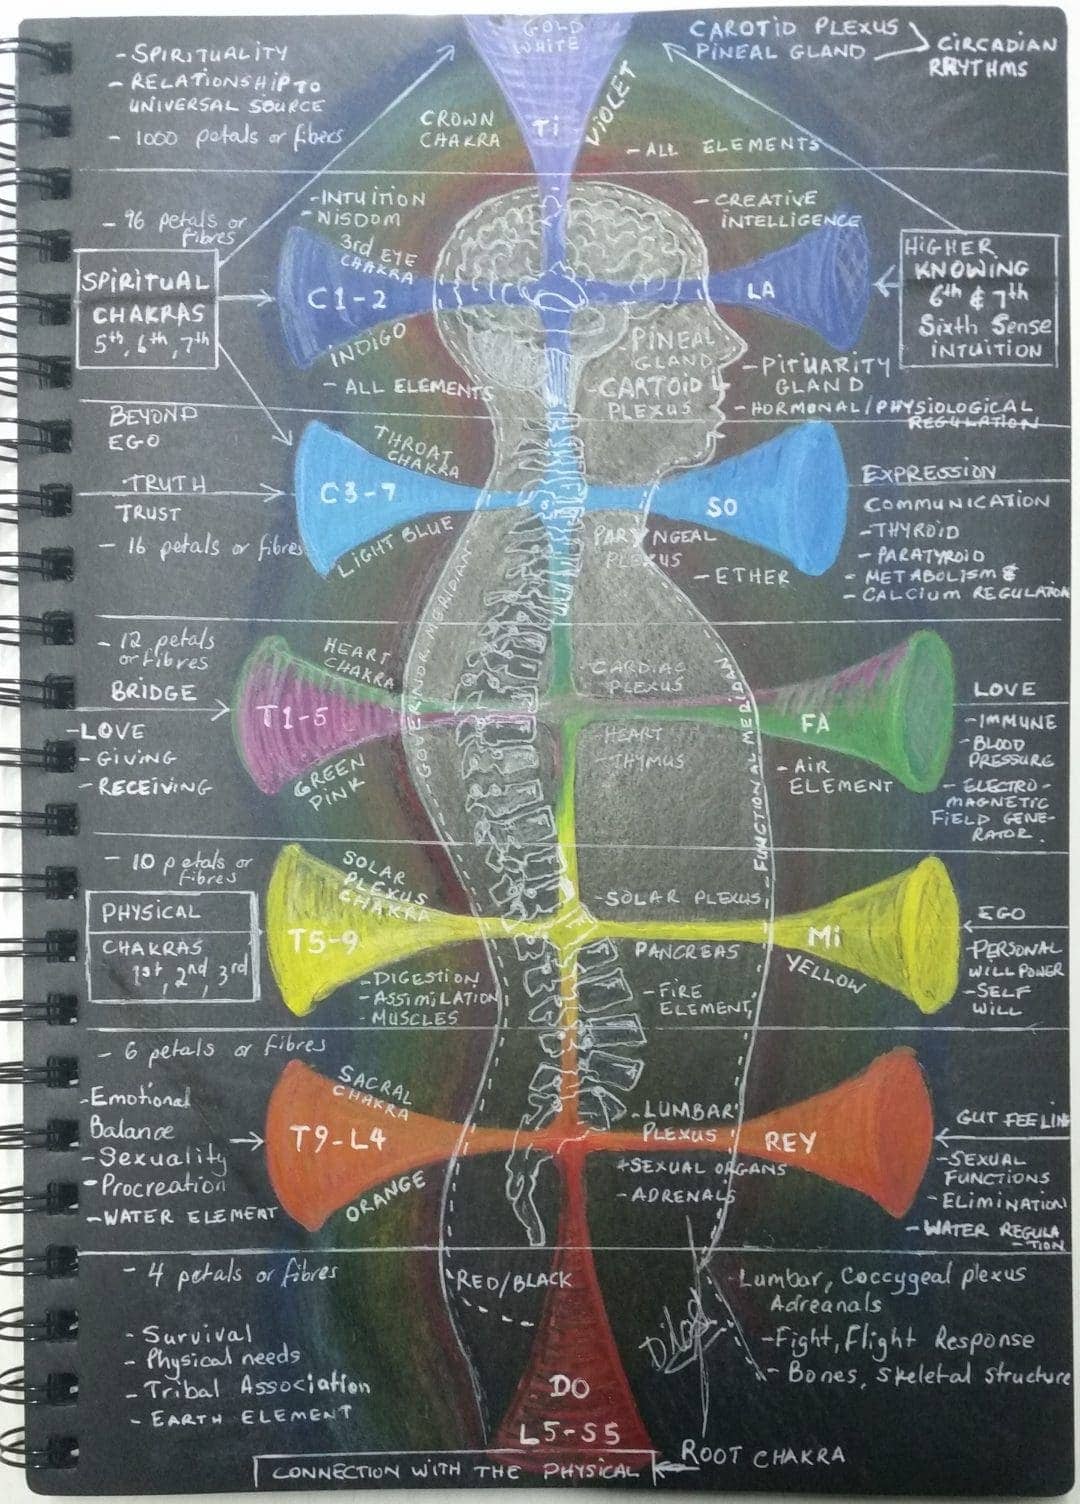 GOLD
WHITE
CAROTID PLEXUS
PINEAL GLAND
CIRCADIAN
RHYTHMS
- SPIRITUALITY
- RELATIONSHIP TO
UNIVERSAL SOURCE
- 1000 petals or fibers
CROWN
CHAKRA
Ti
VIOLET
- ALL ELEMENTS
- 96 petals or
fibres
- INTUITION
- WISDOM
3rd EYE
CHAKRA
- CREATIVE
INTELLIGENCE
SPIRITUAL
CHAKRAS
5th, 6th, 7th
C1-2
LA
HIGHER
KNOWING
6th & 7th
Sixth Sense
INTUITION
INDIGO
- ALL ELEMENTS
PINEAL
GLAND
CARTOID
PLEXUS
- PITUARITY
GLAND
- HORMONAL/PHYSIOLOGICAL
REGULATION
BEYOND
EGO
TRUTH
TRUST
- 16 petals or fibres
THROAT
CHAKRA
C3-7
LIGHT BLUE
SO
PARYNGEAL
PLEXUS
- ETHER
EXPRESSION
COMMUNICATION
- THYROID
- PARATYROID
- METABOLISM &
- CALCIUM REGULATION
GOVERNOR MERIDIAN
- 12 petals
or fibres
BRIDGE
- LOVE
- GIVING
- RECEIVING
HEART
CHAKRA
T1-5
GREEN
PINK
- CARDIAC
PLEXUS
- HEART
- THYMUS
FUNCTIONAL MERIDIAN
FA
- AIR
ELEMENT
LOVE
- IMMUNE
- BLOOD
PRESSURE
- ELECTRO-
MAGNETIC
FIELD GENE-
RATOR.
- 10 petals or
fibres
PHYSICAL
CHAKRAS
1st, 2nd, 3rd
SOLAR
PLEXUS
CHAKRA
T5-9
- DIGESTION
- ASSIMILATION
- MUSCLES
- SOLAR PLEXUS
PANCREAS
- FIRE
ELEMENT
Mi
YELLOW
EGO
- PERSONAL
WILL POWER
- SELF
WILL
- 6 petals or fibres
- Emotional
Balance
- Sexuality
- Procreation
- WATER ELEMENT
SACRAL
CHAKRA
T9-L4
ORANGE
- LUMBAR
PLEXUS
+ SEXUAL ORGANS
- ADRENALS
REY
GUT FEELIN
- SEXUAL
FUNCTIONS
- ELIMINATION
- WATER REGULA
- TION
- 4 petals or fibres
- Survival
- Physical needs
- Tribal Association
- EARTH ELEMENT
RED/BLACK
DO
L5-S5
- Lumbar, Coccygeal plexus
Adreanals
- Fight, Flight Response
- Bones, skeletal structure
ROOT CHAKRA
CONNECTION WITH THE PHYSICAL